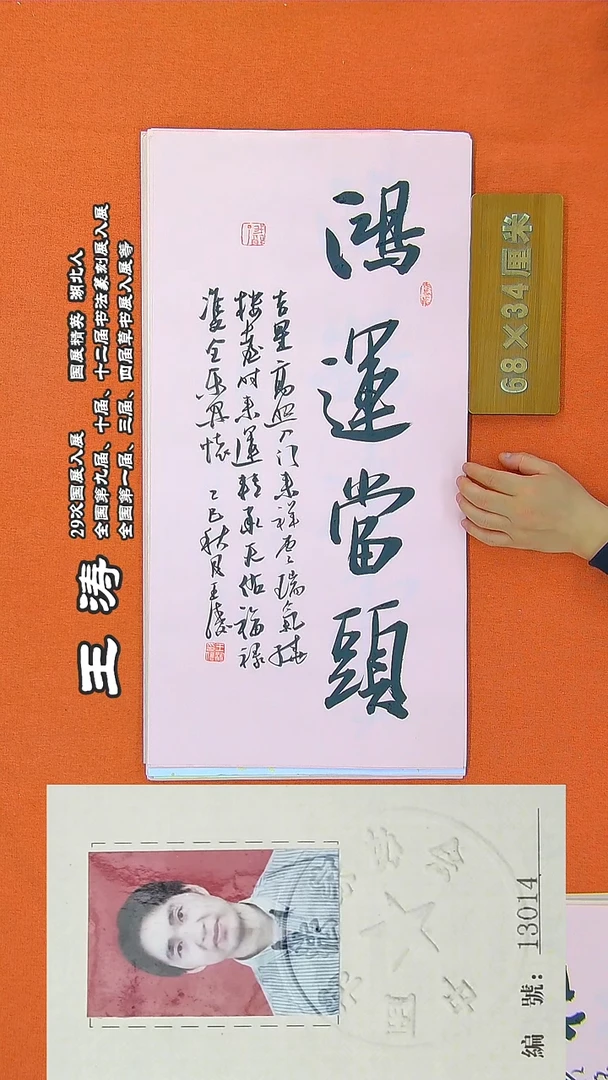 鴻運當頭
吉星高照入门来祥云瑞氣繞
楼臺时来運转承天佑福禄
双全乐開懷 乙巳秋月王涛
68×34厘米
王涛
29次国展入展 国展精英 湖北人
全国第九届、十届、十二届书法篆刻展入展
全国第一届、三届、四届草书展入展等
編 號：13014